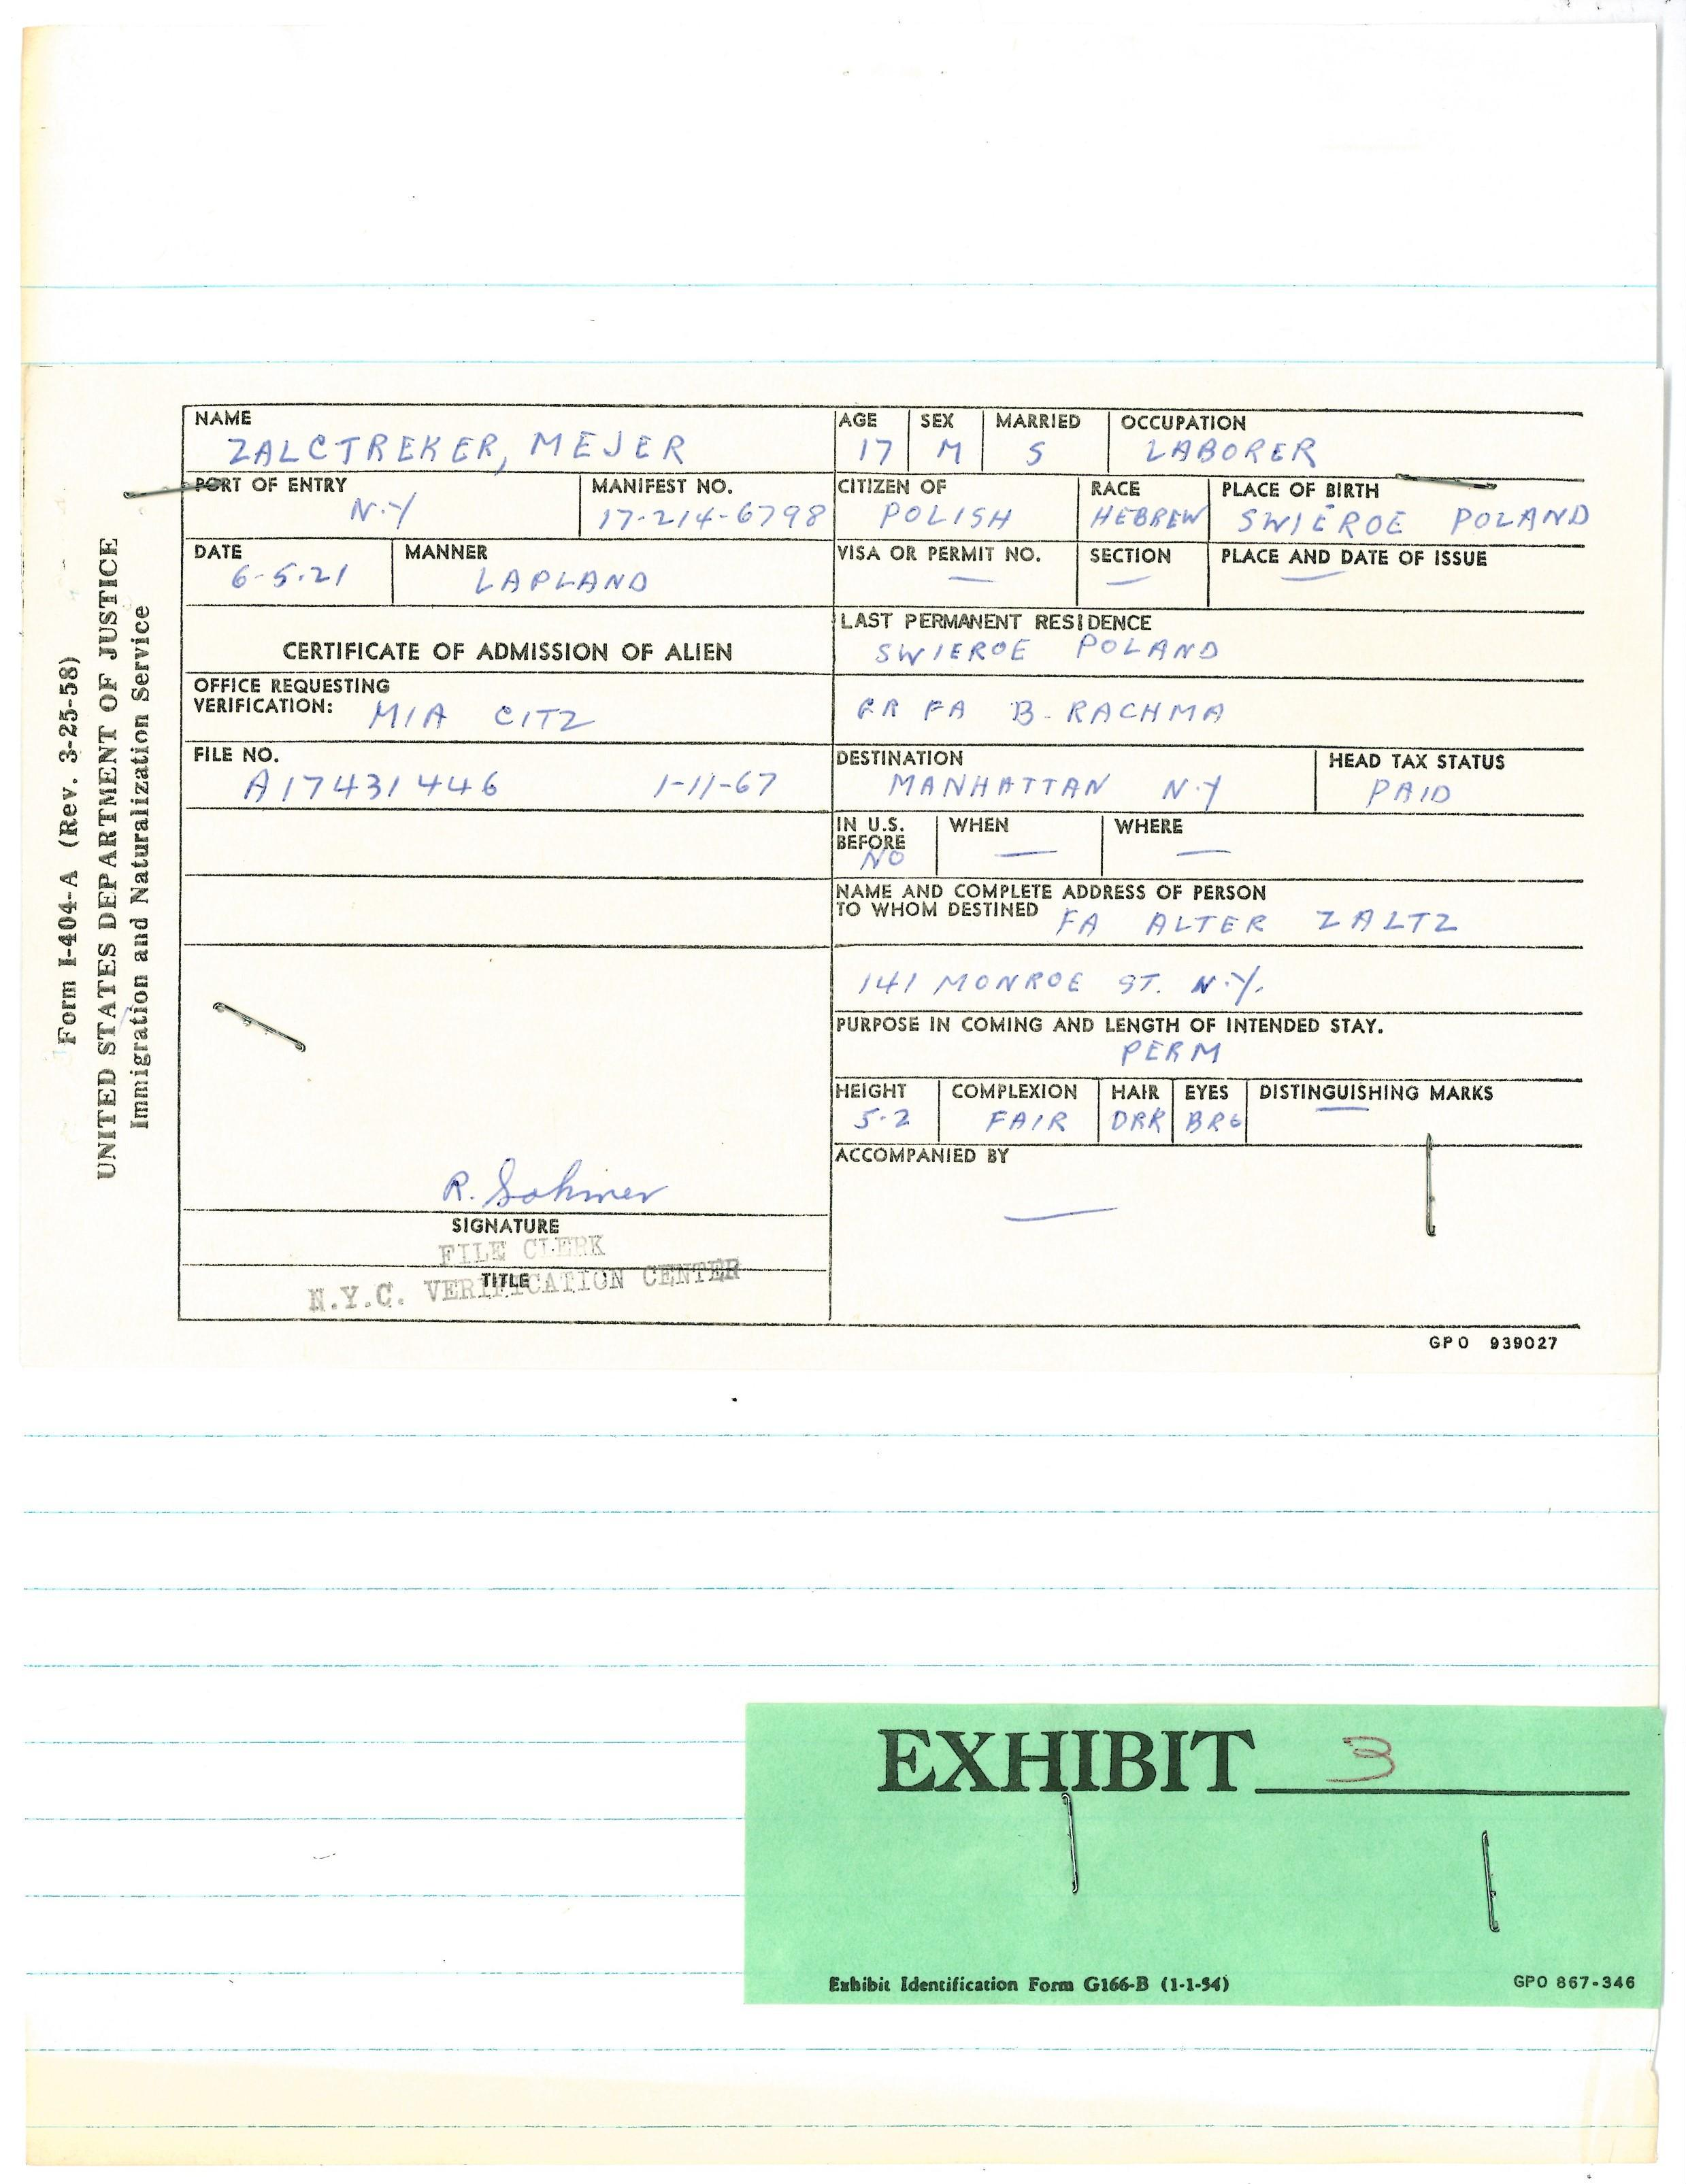 Form I-404-A (Rev. 3-25-58)
UNITED STATES DEPARTMENT OF JUSTICE
Immigration and Naturalization Service
NAME
ZALCTREKER, MEJER
AGE
17
SEX
M
MARRIED
S
OCCUPATION
LABORER
PORT OF ENTRY
N.Y
MANIFEST NO.
17-214-6798
CITIZEN OF
POLISH
RACE
HEBREW
PLACE OF BIRTH
SWIEROE POLAND
DATE
6-5-21
MANNER
LAPLAND
VISA OR PERMIT NO.
—
SECTION
—
PLACE AND DATE OF ISSUE
—
CERTIFICATE OF ADMISSION OF ALIEN
LAST PERMANENT RESIDENCE
SWIEROE POLAND
OFFICE REQUESTING
VERIFICATION: MIA CITZ
FA B. RACHMA
FILE NO.
A17431446 1-11-67
DESTINATION
MANHATTAN N.Y
HEAD TAX STATUS
PAID
IN U.S.
BEFORE
NO
WHEN
—
WHERE
—
NAME AND COMPLETE ADDRESS OF PERSON
TO WHOM DESTINED FA ALTER ZALTZ
141 MONROE ST. N.Y.
PURPOSE IN COMING AND LENGTH OF INTENDED STAY.
PERM
HEIGHT
5-2
COMPLEXION
FAIR
HAIR
DRK
EYES
DISTINGUISHING MARKS
—
ACCOMPANIED BY
—
R. Sohmer
SIGNATURE
FILE CLERK
TITLE
N.Y.C. VERIFICATION CENTER
GPO 939027
EXHIBIT 3
Exhibit Identification Form G166-B (1-1-54)
GPO 867-346